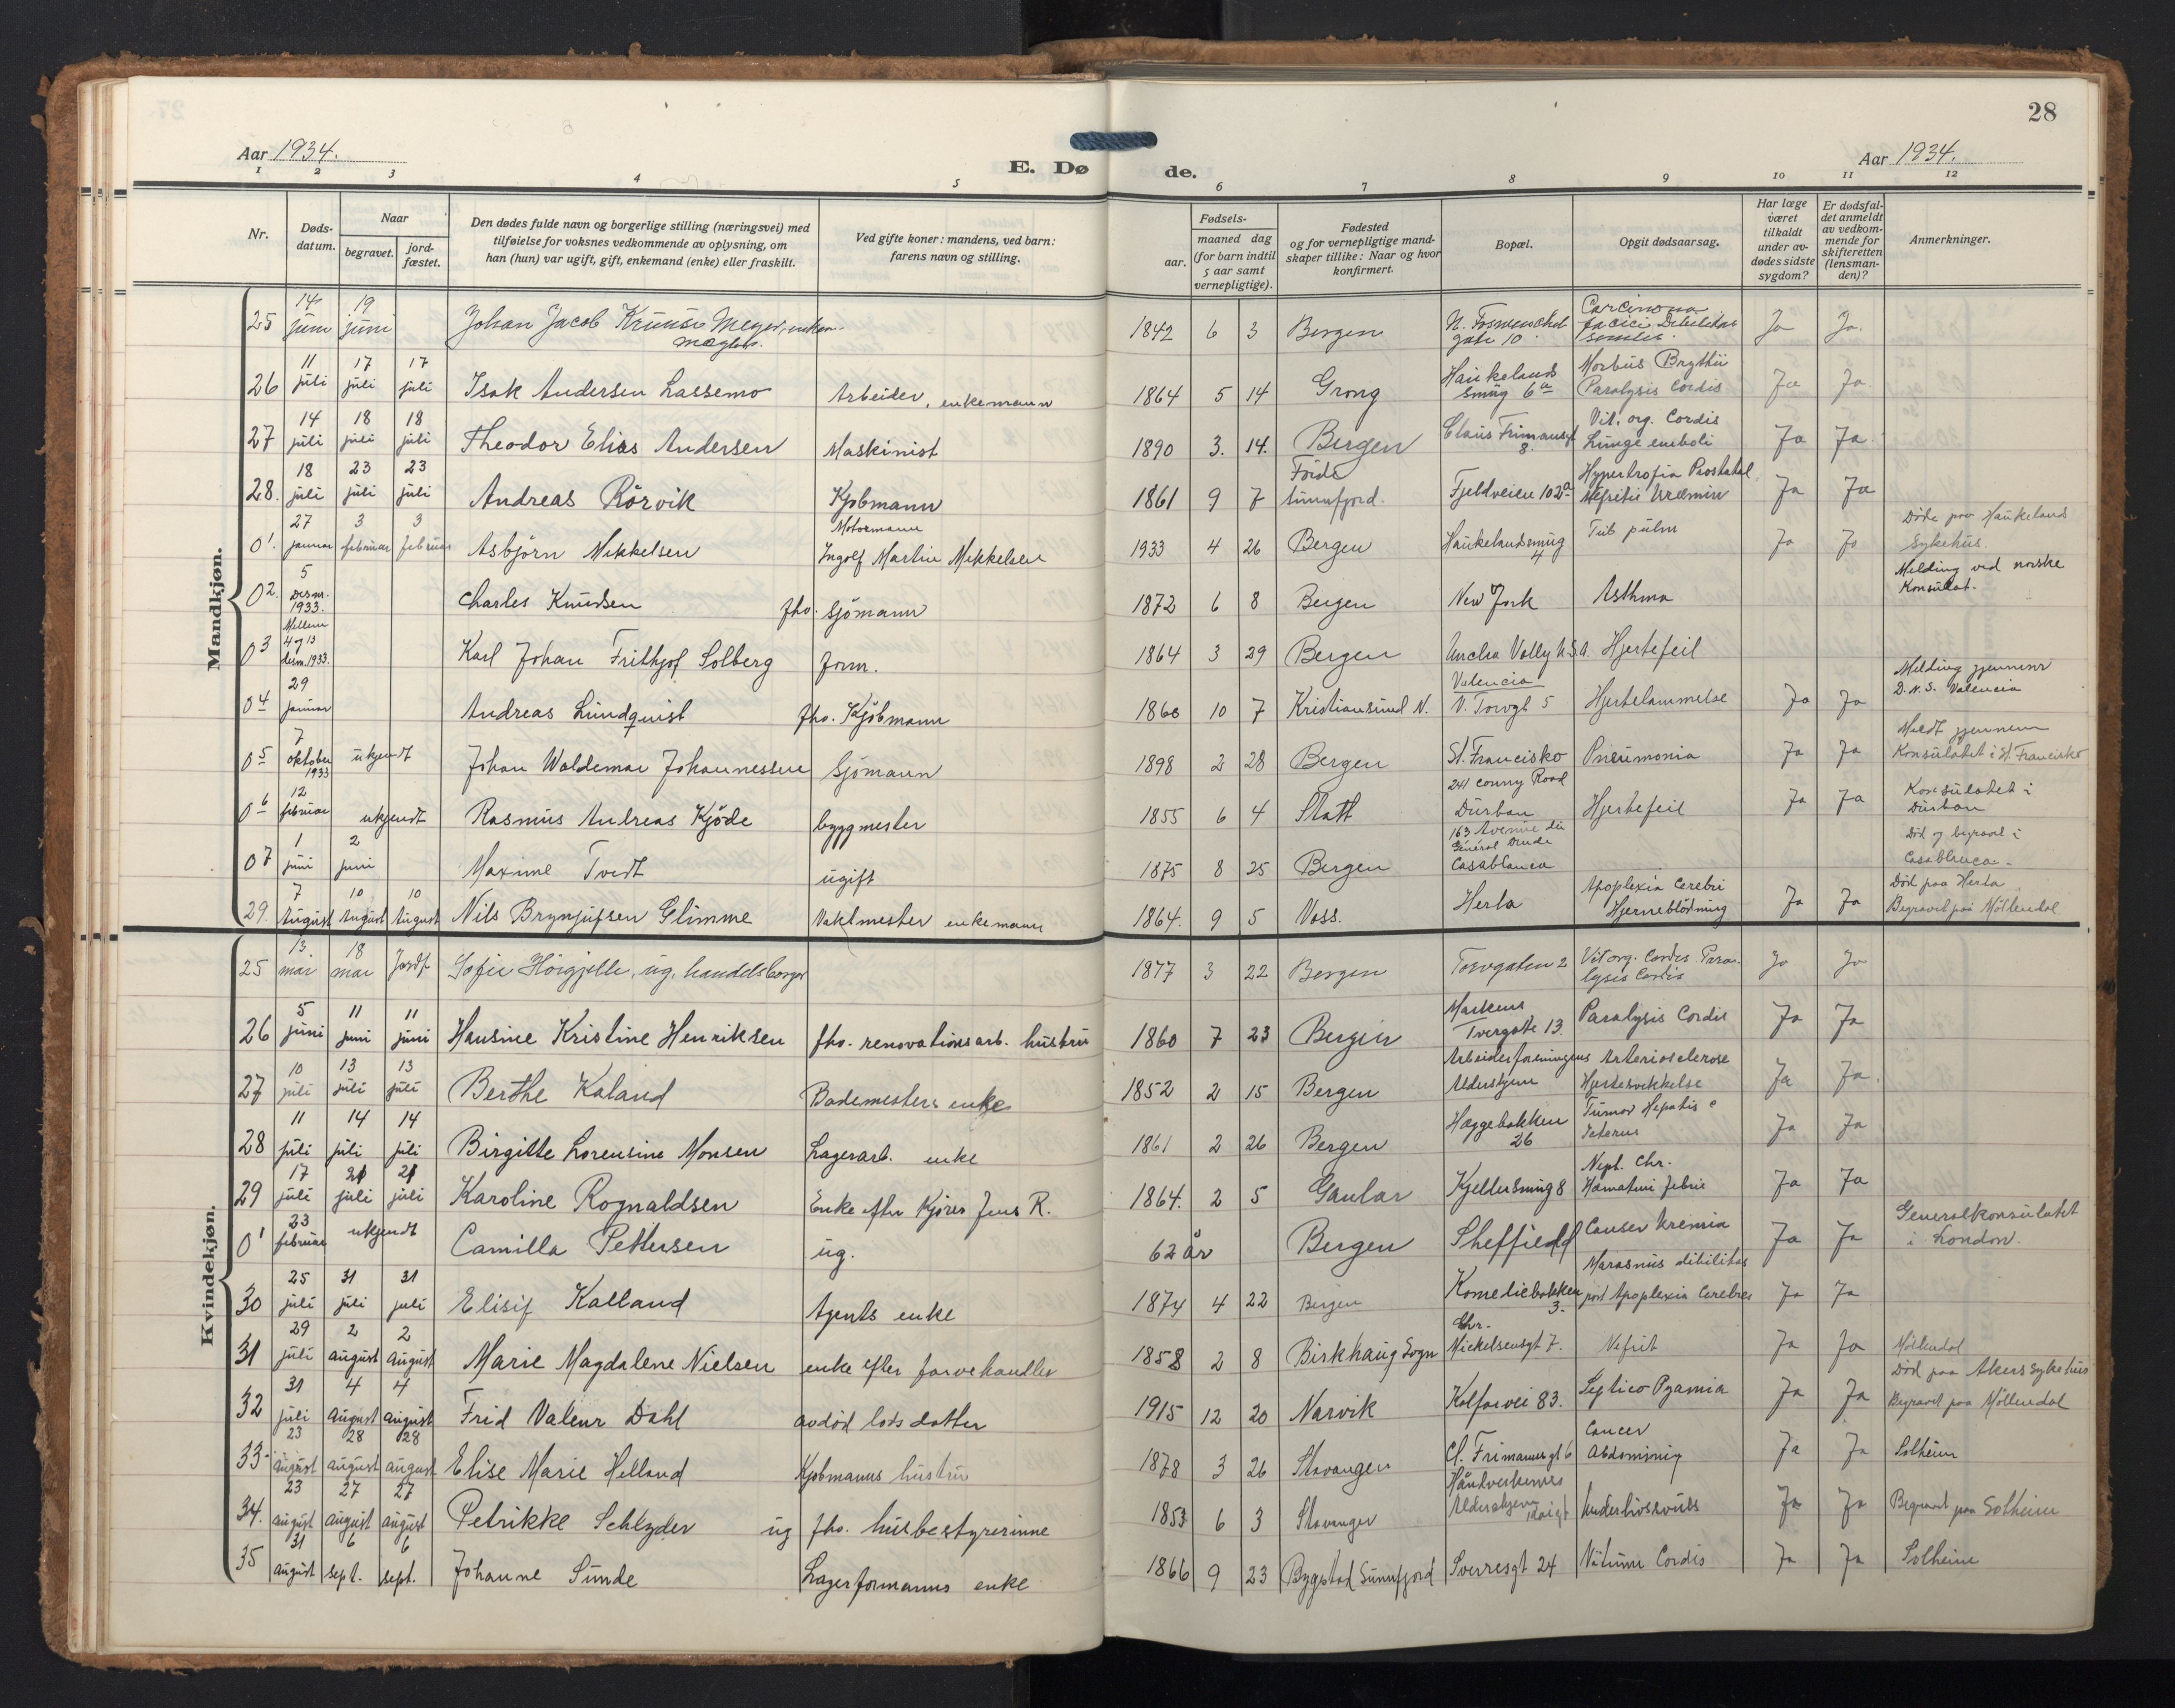 28
Aar 1934.
Aar 1934.
E. Dø de.
1 2 3 4 5 6 7 8 9 10 11 12
Nr.
Døds-
datum.
Naar
begravet.
jord-
fæstet.
Den dødes fulde navn og borgerlige stilling (næringsvei) med
tilføielse for voksnes vedkommende av oplysning, om
han (hun) var ugift, gift, enkemand (enke) eller fraskilt.
Ved gifte koner: mandens, ved barn:
farens navn og stilling.
Fødsels-
aar.
maaned dag
(for barn indtil
5 aar samt
vernepligtige).
Fødested
og for vernepligtige mand-
skaper tillike: Naar og hvor
konfirmert.
Bopæl.
Opgit dødsaarsag.
Har læge
været
tilkaldt
under av-
dødes sidste
sygdom?
Er dødsfal-
det anmeldt
av vedkom-
mende for
skifteretten
(lensman-
den)?
Anmerkninger.
Mandkjøn.
25 14 juni 19 juni Johan Jacob Meyer, enkem. mægler. 1842 6 3 Bergen gate 10 Carcinoma faciei Debilitas senilis. Ja Ja.
26 11 juli 17 juli 17 juli Isak Andersen Lassemo Arbeider, enkemann 1864 5 14 Grong Haukelands smug 6a Morbus Brythii Paralysis Cordis Ja Ja
27 14 juli 18 juli 18 juli Theodor Elias Andersen Maskinist 1890 3. 14. Bergen Claus Frimansgt 8. Vit. org. Cordis Lunge emboli Ja Ja.
28. 18 juli 23 juli 23 juli Andreas Rörvik Kjöbmann 1861 9 7 Förde Sunnfjord. Fjeldveien 102a Hypertrofia Prostatal Nefritis Uræmiu Ja Ja
01. 27 januar 3 februar 3 februar Asbjörn Mikkelsen Motormann Ingolf Martin Mikkelsen 1933 4 26 Bergen Haukelandsmug 4 Tub pulm Ja Ja Döde paa Haukelands Sykehus.
02. 5 desm. 1933. Charles Knudsen fhv. sjömann 1872 6 8 Bergen New York Asthma Melding ved norske Konsulat.
03 Mellem 4 og 13 desm. 1933. Karl Johan Frithjof Solberg form. 1864 3 29 Bergen Volly U.S.A. Hjertefeil
04 29 januar Andreas Lundquist fhv. Kjöbmann 1860 10 7 Kristiansund N. Valencia V. Torvgt 5 Hjertelammelse Ja Ja Melding gjennem D.N.S. Valencia
05 7 oktober 1933 ukjendt Johan Waldemar Johannessen Sjömann 1898 2 28 Bergen St. Francisko Pneumonia Ja Ja Meldt gjennem Konsulatet i St. Francisko
06 12 februar ukjendt Rasmus Andreas Kjöde byggmester 1855 6 4 Statt 241 Conny Road Durban Hjertefeil Ja Ja Konsulatet i Durban
07 1 juni 2 juni Maxime Tvedt ugift 1875 8 25 Bergen 163 Avenue du Général Drude Casablanca Död og begravet i Casablanca.
29. 7 August 10 August 10 August Nils Brynjulfsen Glimme Vaktmester enkemann 1864. 9 5 Voss. Herla Apoplexia Cerebri Hjerneblödning Ja Ja Död paa Herla Begravet paa Möllendal
Kvindekjøn.
25 13. mai 18 mai Jordf. Sofie ug. handelsborger 1877 3 22 Bergen Torvgaten 2 Vit org. Cordis Paralysis Cordis Ja Ja
26 5 juni 11 juni 11 juni Hansine Kristine Henriksen fhv. renovationsarb. hustru 1860 7 23 Bergen Markens Tvergate 13. Paralysis Cordis Ja Ja
27 10 juli 13 juli 13 juli Berthe Kaland Bademesters enke 1852 2 15 Bergen Arbeiderforeningens Aldershjem Arteriosclerose Hjertesvekkelse Ja Ja.
28 11 juli 14 juli 14 juli Birgitte Lorensine Monsen Lagerarb. enke 1861 2 26 Bergen Heggebakken 26 Tumor Hepatis c Icterus Ja Ja
29 17 juli 21 juli 21 juli Karoline Rognaldsen Enke efter Kjörer Jens R. 1864. 2 5 Gaular Kjellersmug 8 Neph. Chr. Hæmaturi febris Ja Ja
01 23 februar ukjendt Camilla Pettersen ug. 62 år Bergen Sheffield Canser Uremia Ja Ja Generalkonsulatet i London.
30 25 juli 31 juli 31 juli Elisif Kalland Agents enke 1874 4 22 Bergen Komediebakken 3. Marasmus debilitas post Apoplexia Cerebri Ja Ja
31 29 juli 2 august 2 august Marie Magdalene Nielsen enke efter farvehandler 1858 2 8 Birkhaug Sogn Chr. Mickelsensgt 7. Nefrit Ja Ja Möllendal
32 31 juli 4 august 4 august Frid Valeur Dahl avdöd lods datter 1915 12 20 Narvik Kalfarvei 83. Septico Pyamia Ja Ja Död paa Akers Sykehus Begravet paa Möllendal
33 23 august 28 august 28 august Elise Marie Helland Kjöbmanns hustru 1878 3 26 Stavanger Cl. Frimannsgt 6 Cancer Abdominis Ja Ja Solheim
34. 23 august 27 august 27 august Petrikke Schlyder ug fhv. husbestyrerinne 1853 6 3 Stavanger Håndverkernes Aldershjem Underlivssvuls Ja Ja Begravet paa Solheim
35 31 august 6 sept. 6 sept. Johanne Sunde Lagerformanns enke 1866 9 23 Bygstad Sunnfjord Sverresgt 24 Vitium Cordis Ja Ja Solheim